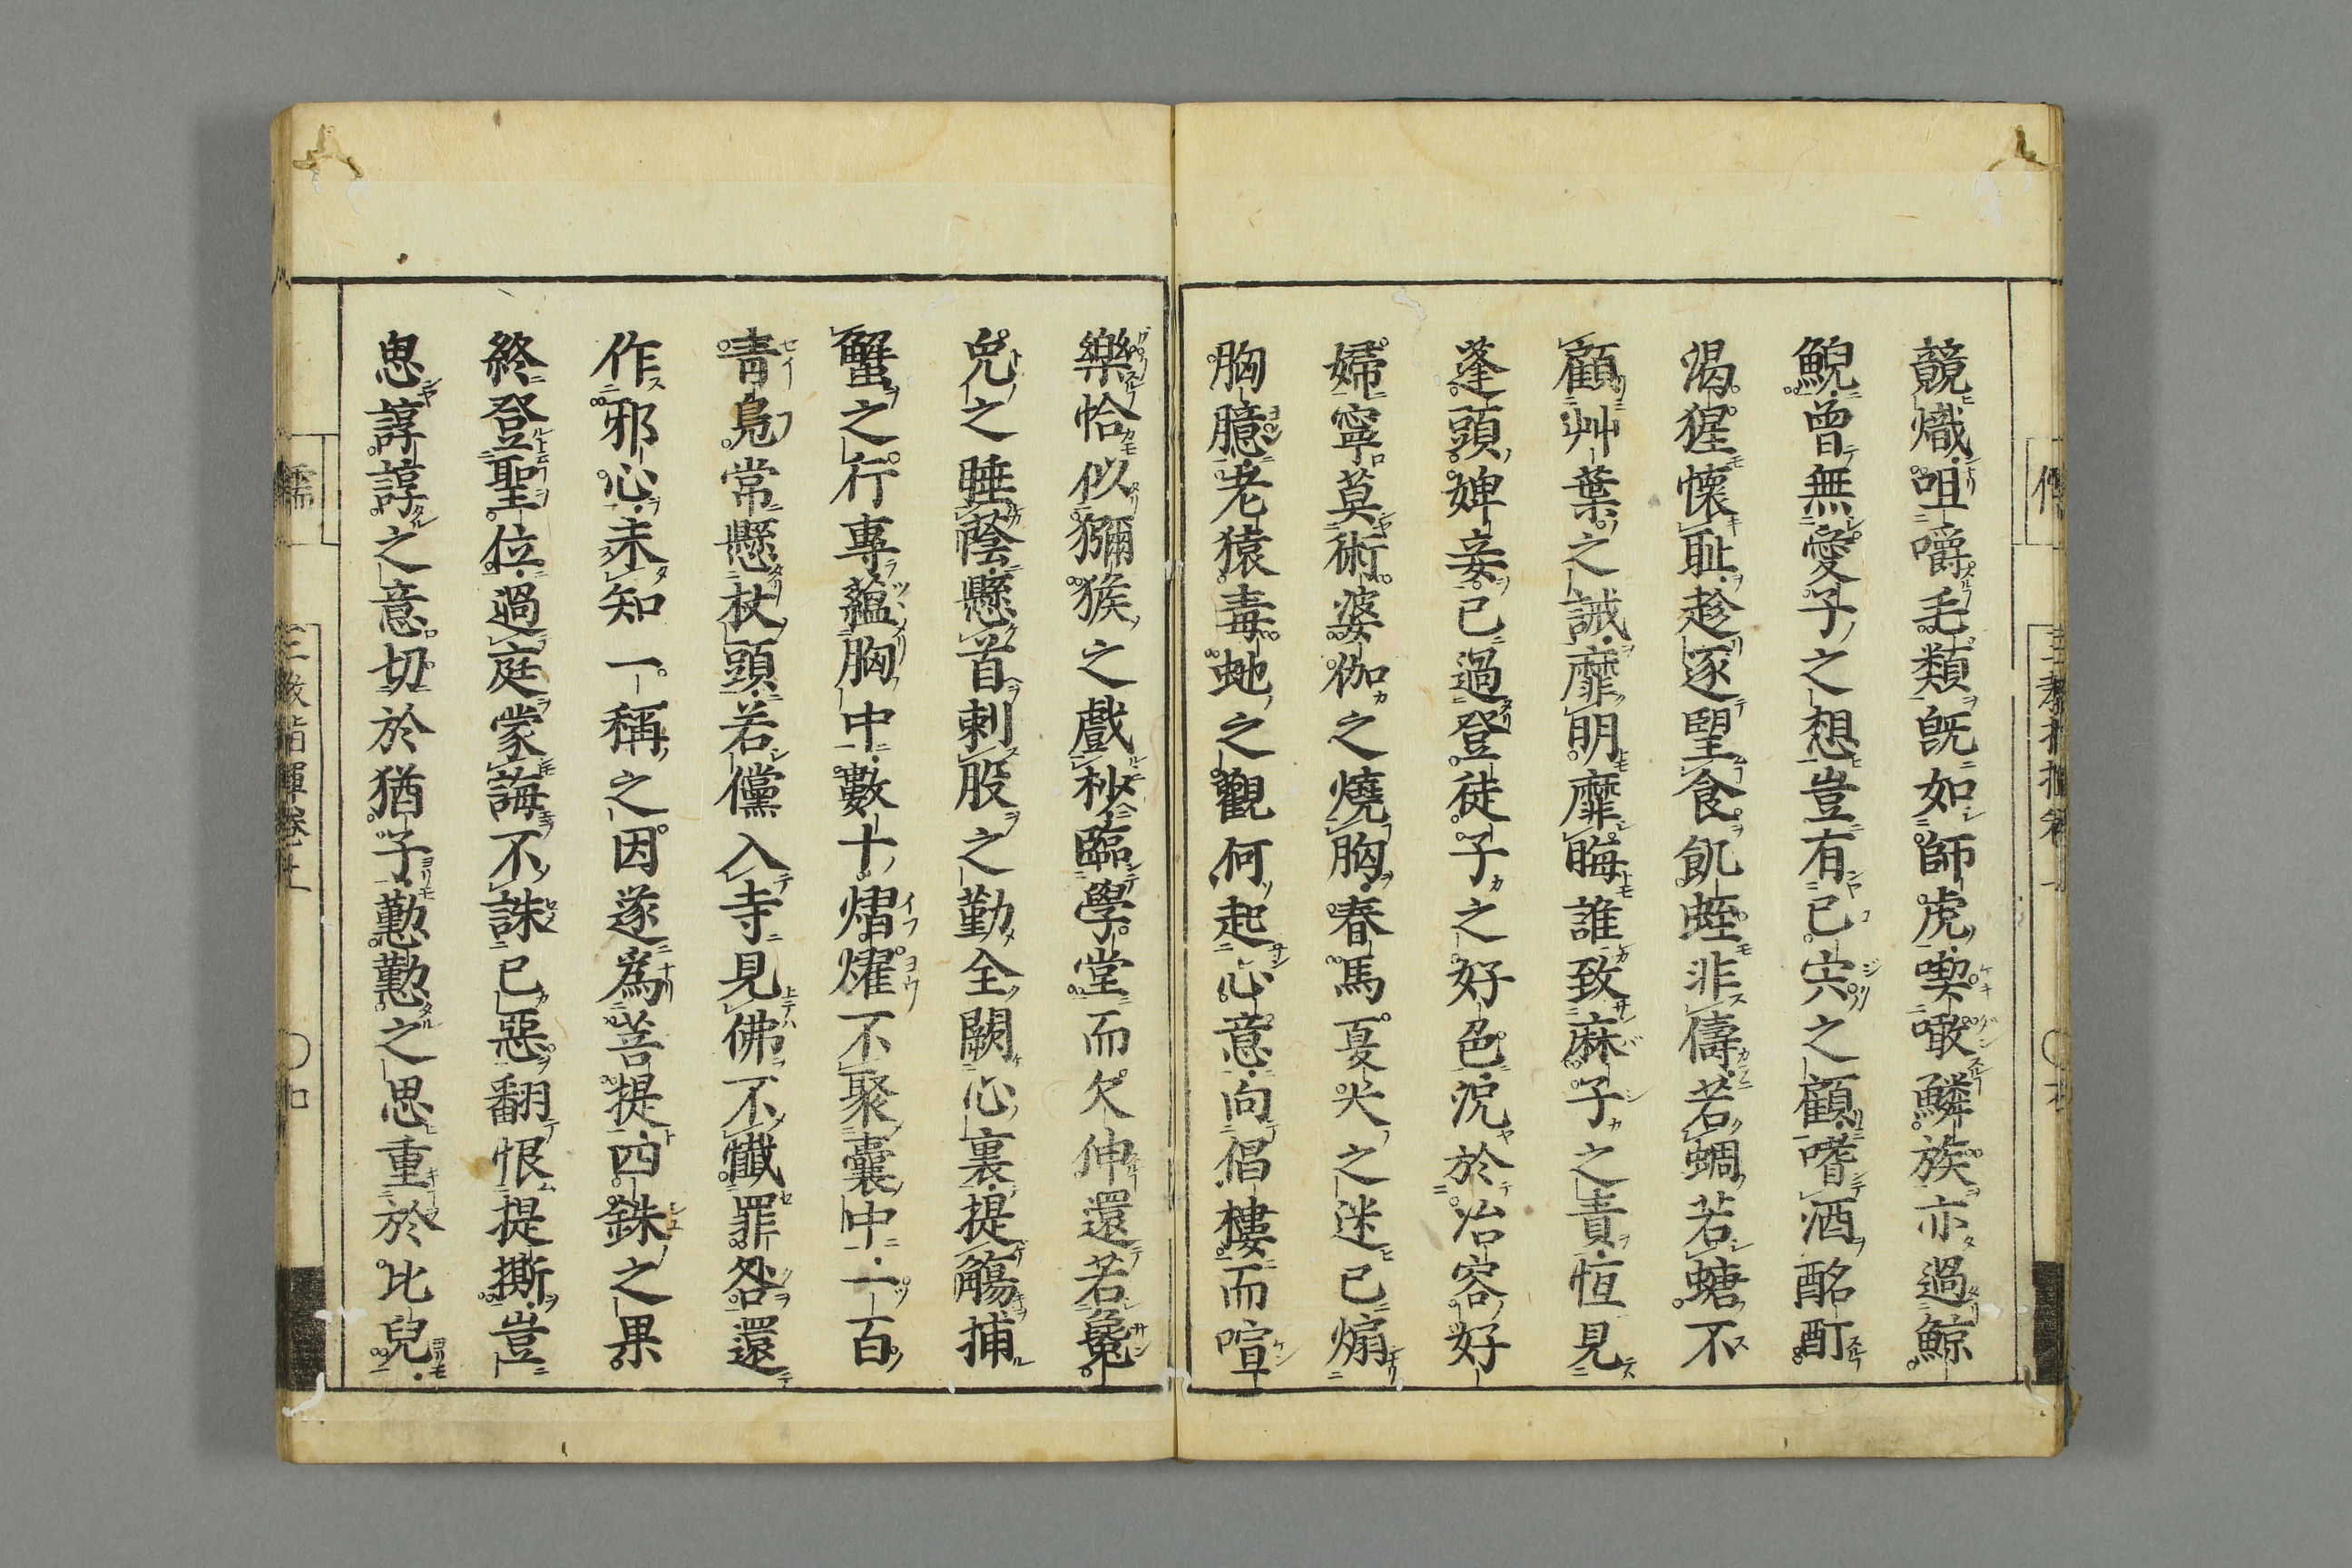 競熾咀嚼毛類既如師虎喫噉鱗族亦過鯨
鯢曾無愛子之想豈有已宍之顧嗜酒酩酊
渴猩懷耻趁逐望食飢蛭非儔若蜩若螗不
顧艸葉之誡靡明靡晦誰致麻子之責恒見
蓬頭婢妾已過登徒子之好色况於冶容好
婦寧莫術婆伽之燒胸春馬夏犬之迷已煽
胸臆老猿毒虵之觀何起心意向倡樓而喧
樂恰似獼猴之戲杪臨學堂而欠伸還若毚
兔之睡蔭懸首刺股之勤全闕心裏提觴捕
蟹之行專蘊胸中數十熠燿不聚囊中一百
青鳧常懸杖頭若儻入寺見佛不懺罪咎還
作邪心未知一稱之因遂爲菩提四銖之果
終登聖位過庭蒙誨不誅已惡翻恨提撕豈
思諄諄之意切於猶子懃懃之思重於比兒
三教指揮卷上